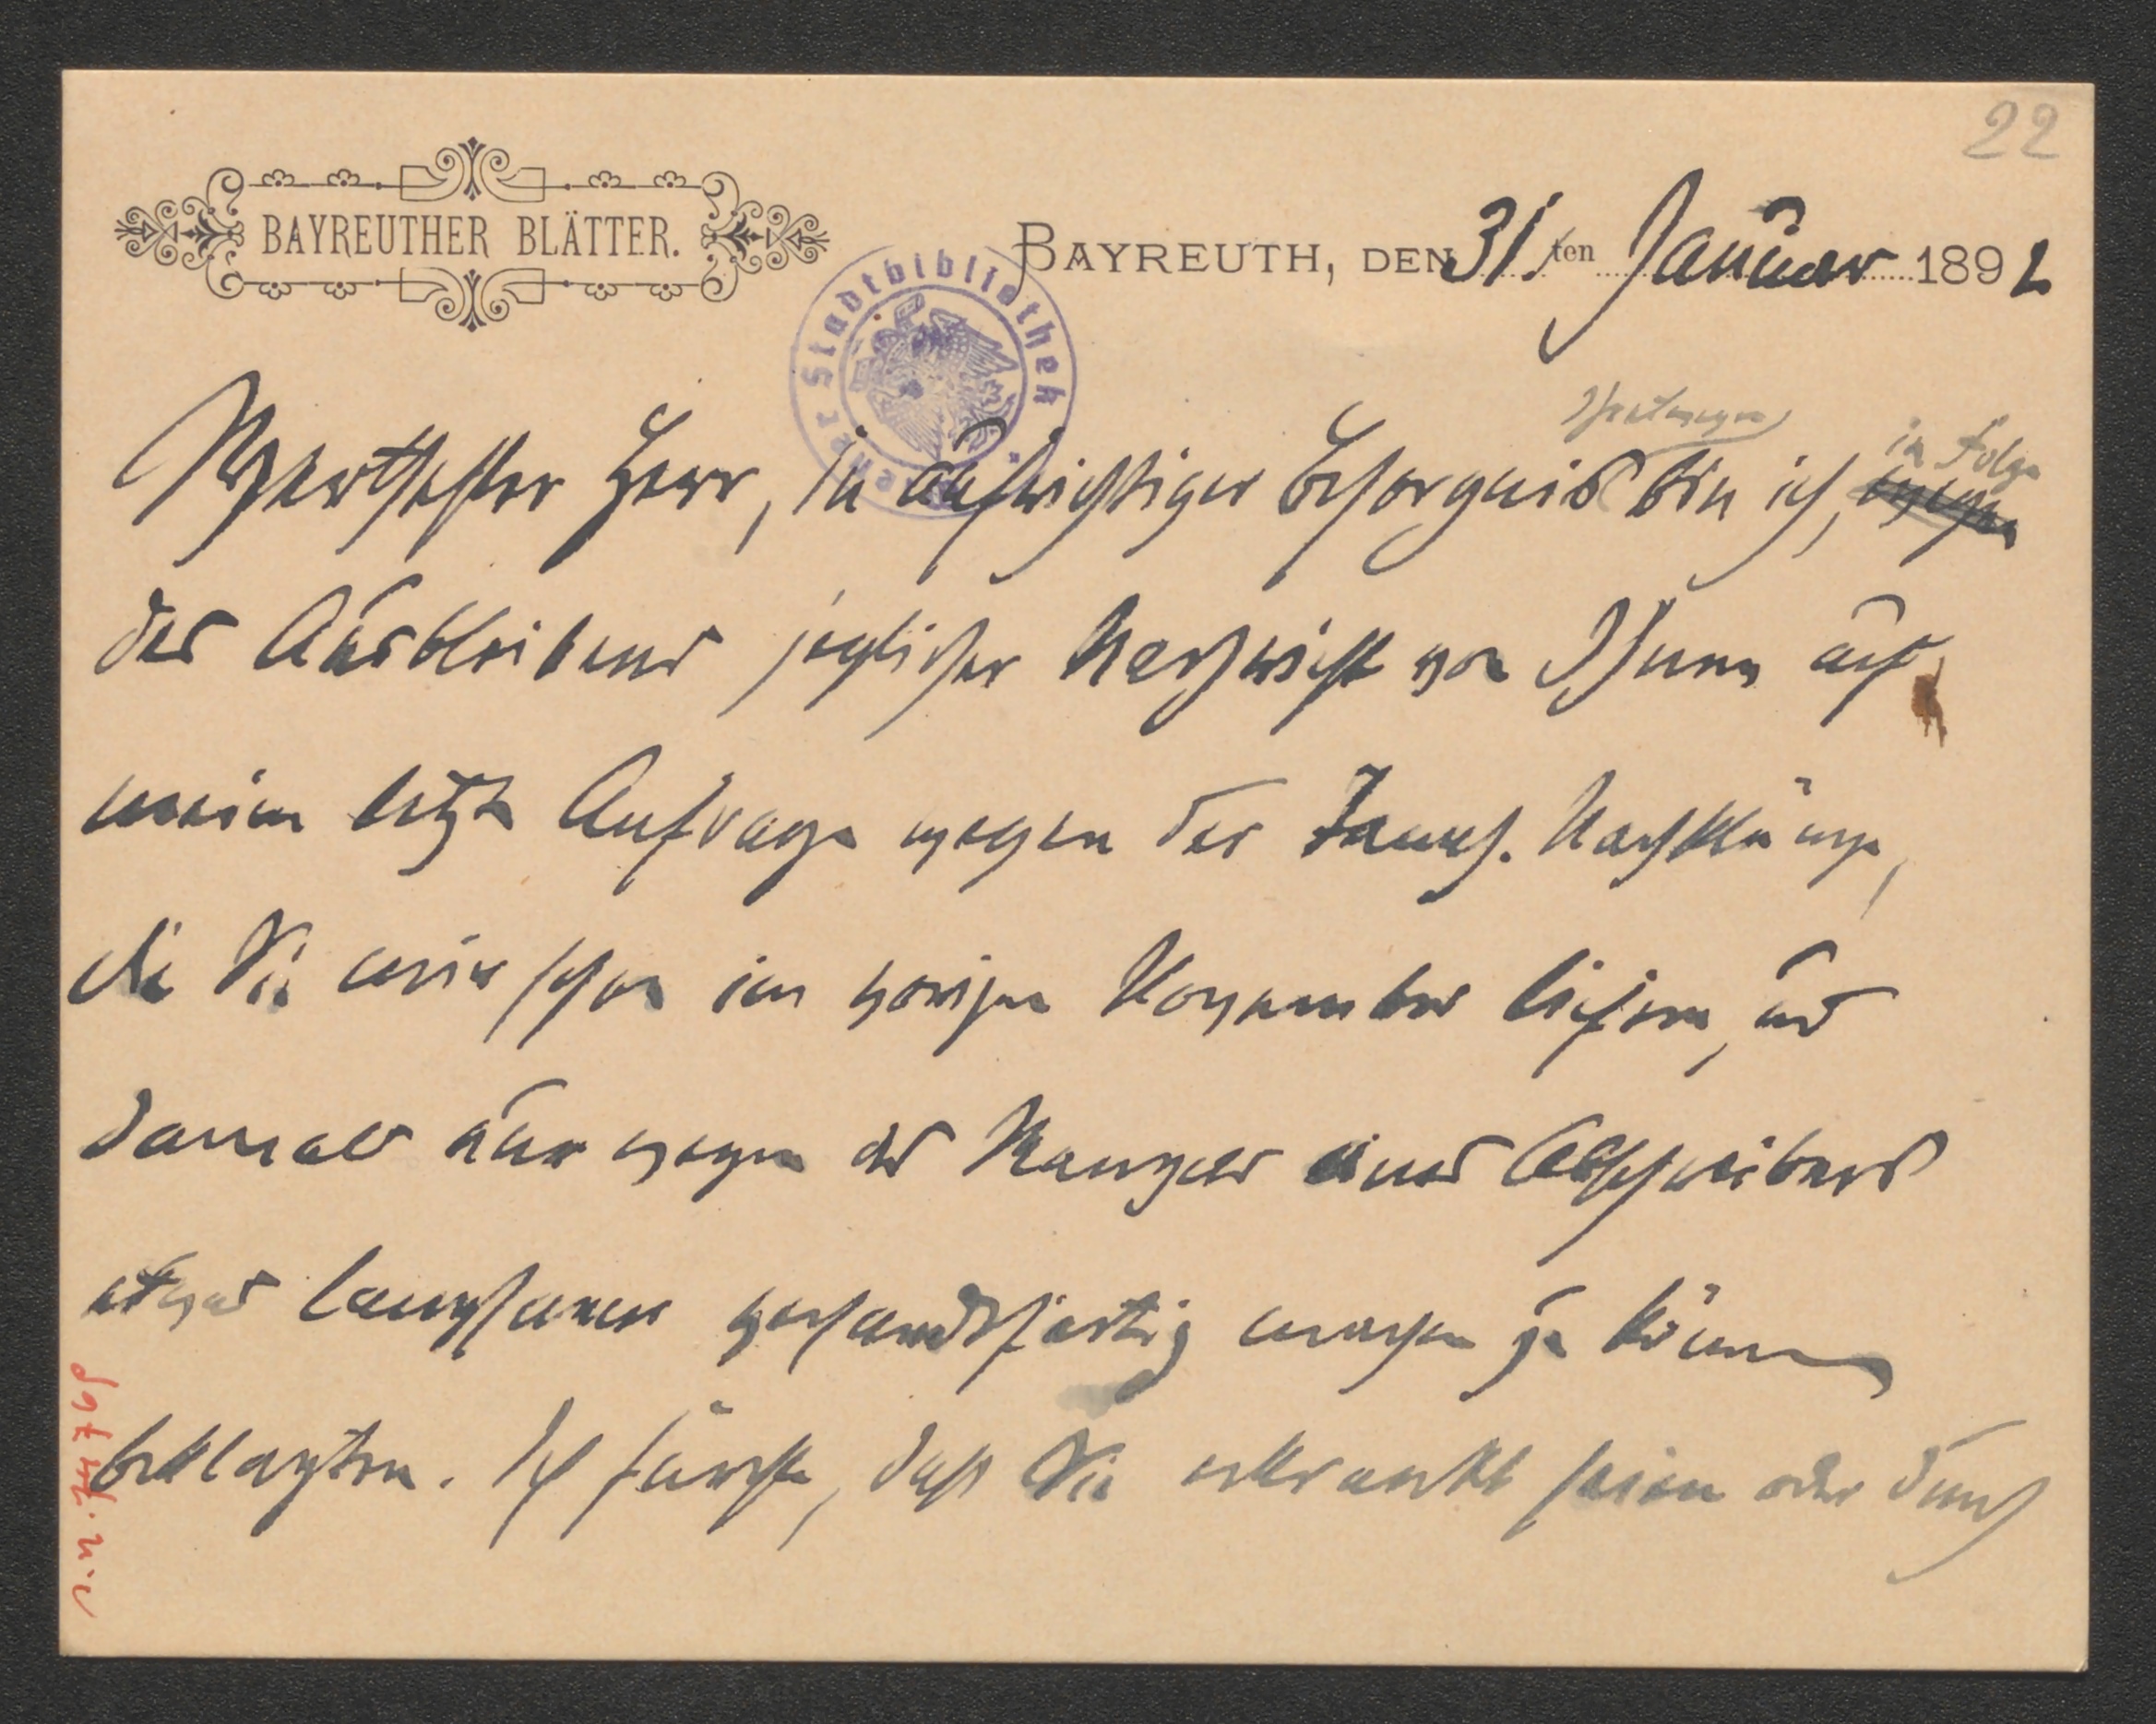 22
BAYREUTHER BLÄTTER.
BAYREUTH, DEN 31.ten Januar 1892
Wiener Stadtbibliothek
Ihretwegen in Folge
Werthester Herr, in aufrichtiger Besorgniß bin ich, wegen
des Ausbleibens jeglicher Nachricht von Ihnen auf
meine letzte Anfrage wegen der Nachklänge,
die Sie mir schon im vorigen November liefern, und
damals nur wegen des Mangels eines Abschreibers
etwas langsamer versandtfertig machen zu können
beklagten. Ich fürchte, daß Sie erkrankt seien oder durch